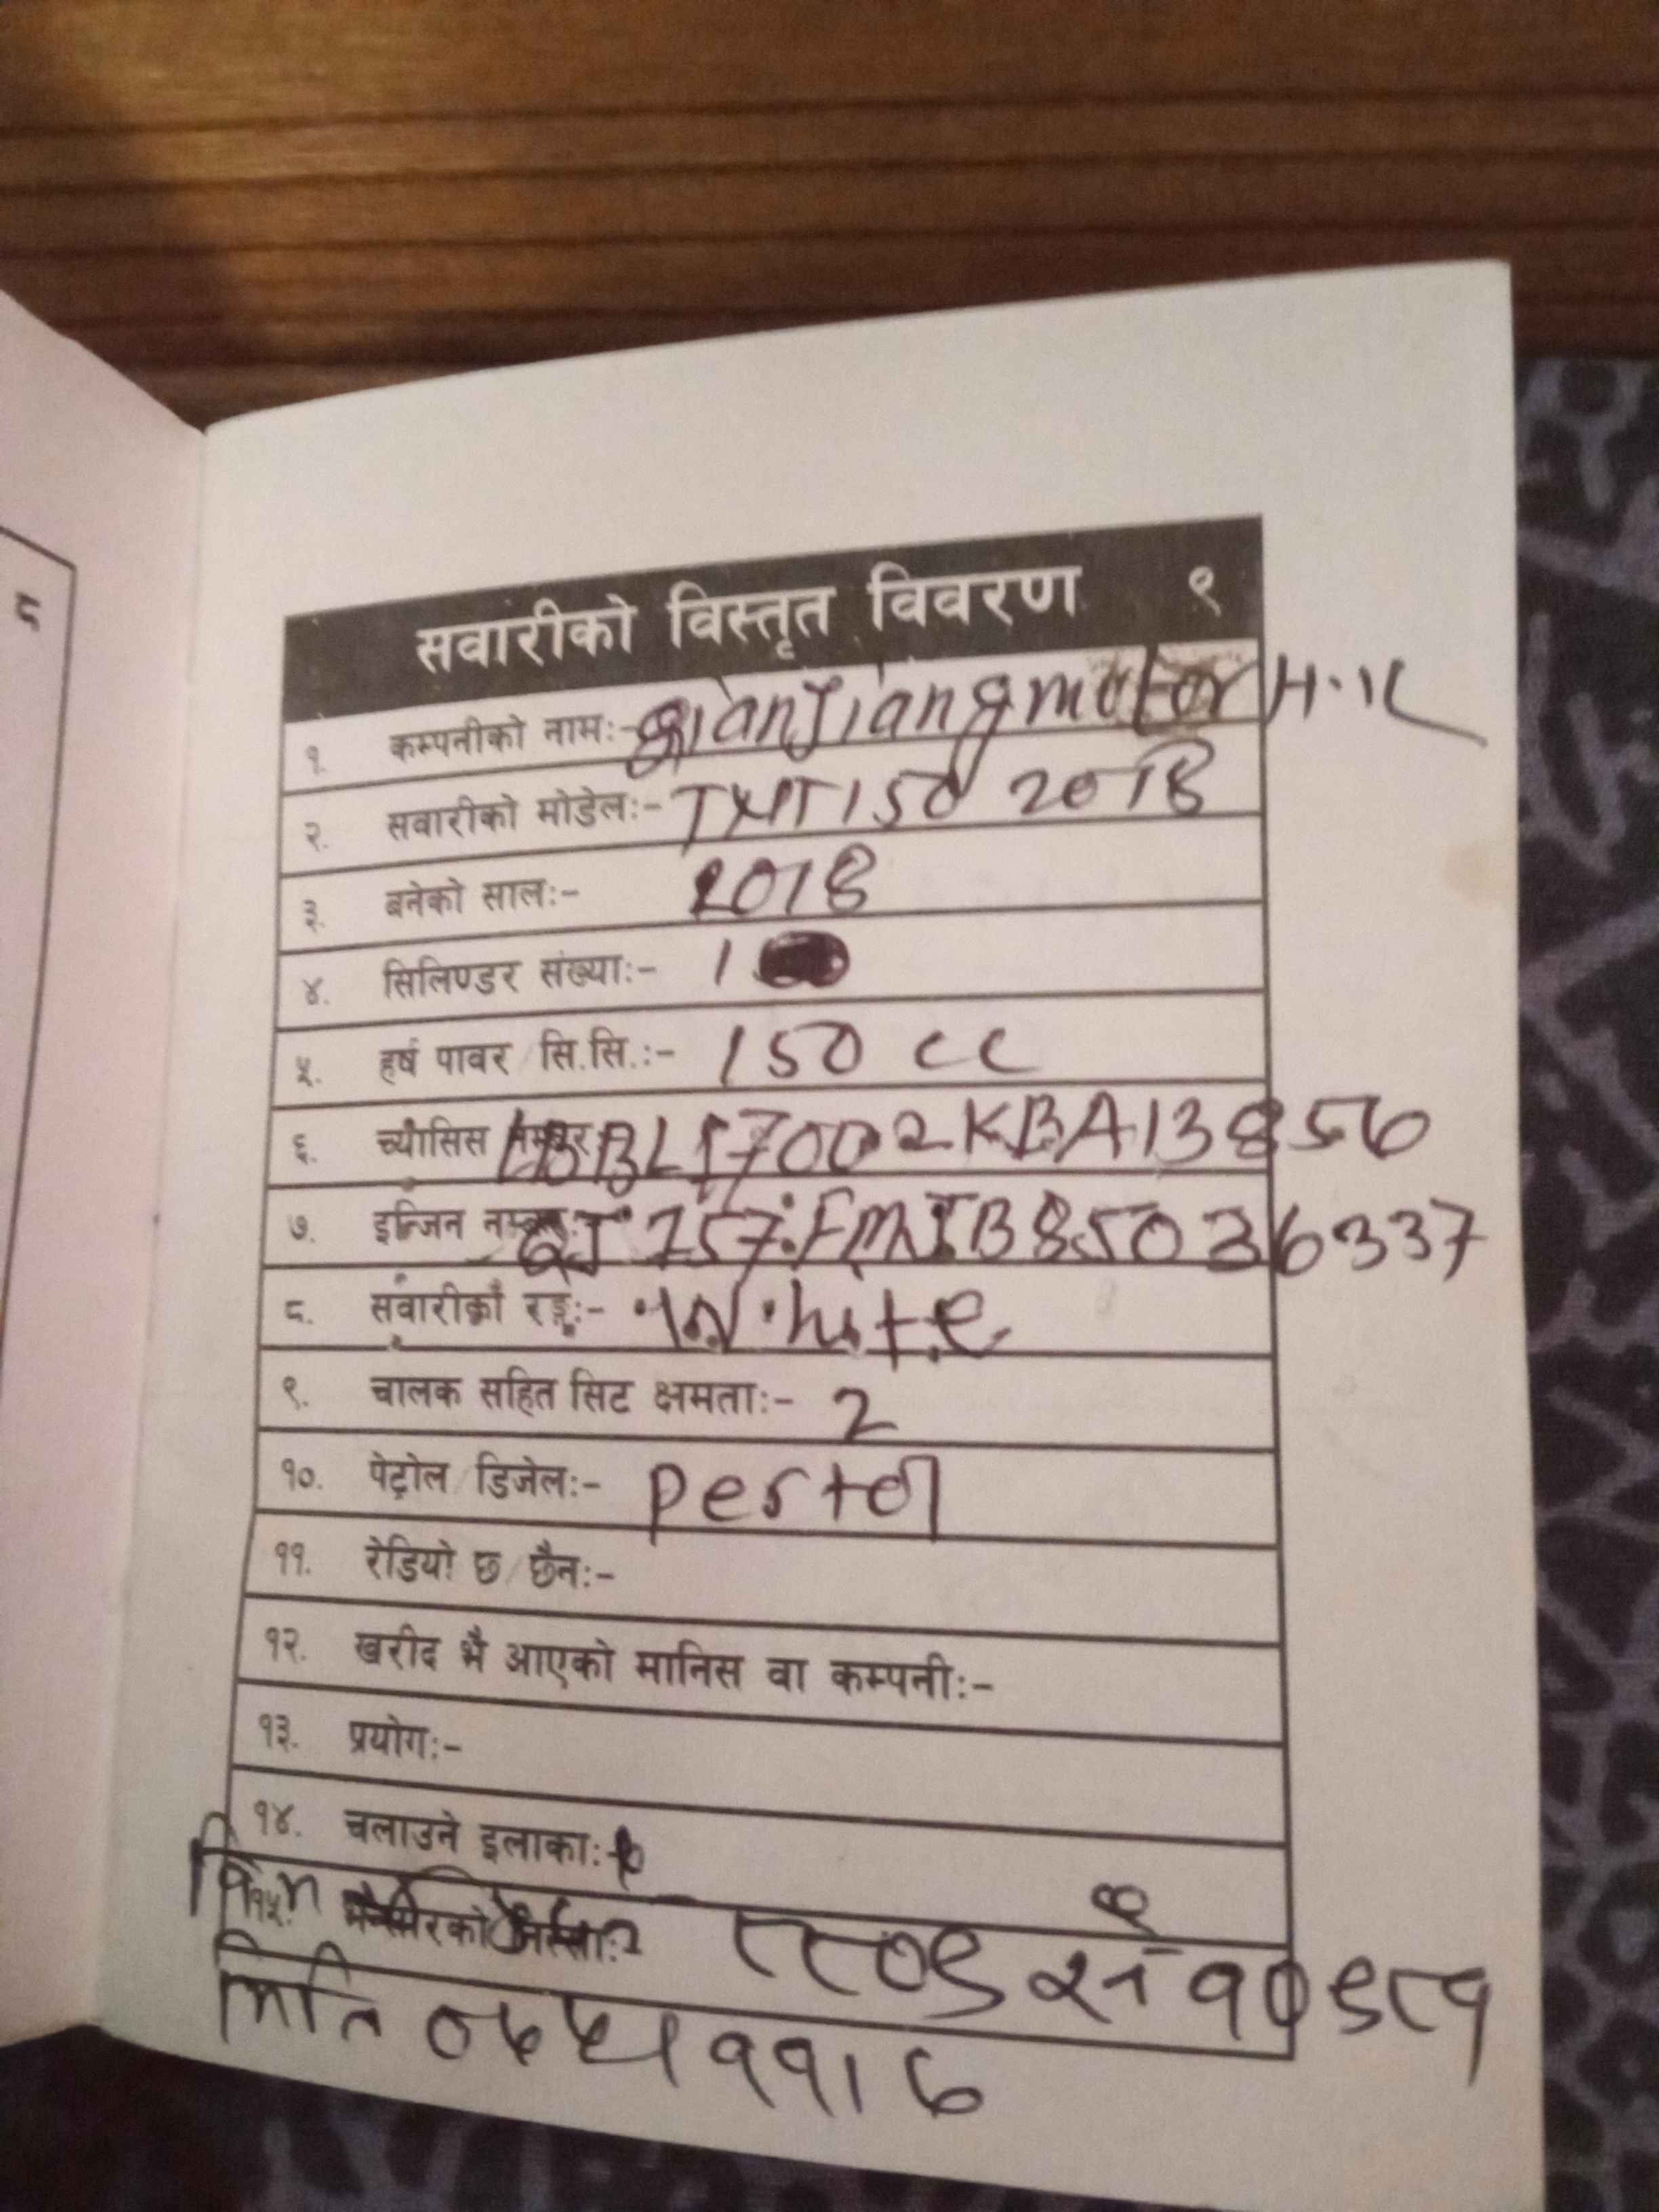 ८
सवारीको विस्तृत विवरण ९
१. कम्पनीको नाम:- Qianjiang motor H.K
२. सवारीको मोडेल:- TXT150 2018
३. बनेको साल:- 2018
४. सिलिण्डर संख्या:- 1
५. हर्ष पावर/सि.सि.:- 150 CC
६. च्यासिस नम्बर:- 2KBA13856
७. इन्जिन नम्बर:- QJ157:FMJB85036337
८. सवारीको रङ्ग:- White
९. चालक सहित सिट क्षमता:- 2
१०. पेट्रोल/डिजेल:- pertol
११. रेडियो छ/छैन:-
१२. खरीद भै आएको मानिस वा कम्पनी:-
१३. प्रयोग:-
१४. चलाउने इलाका:-
१५.
मिति